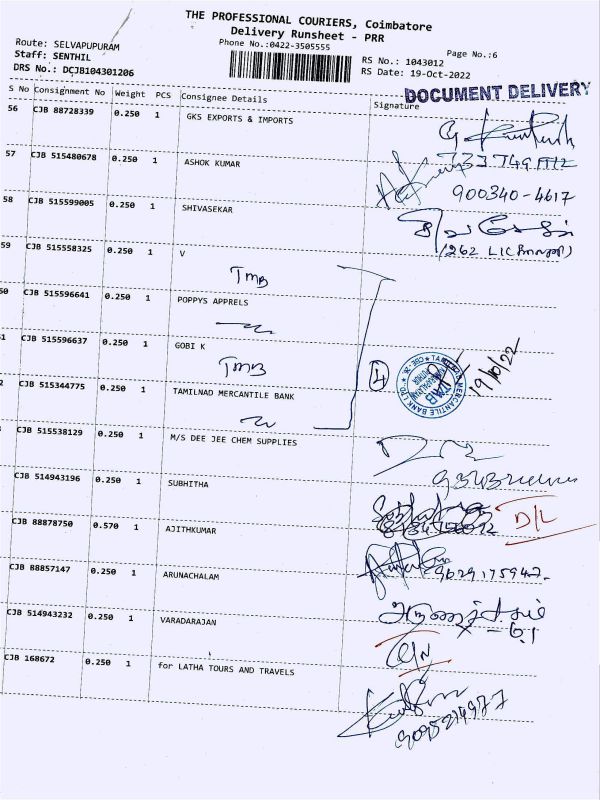 THE PROFESSIONAL COURIERS, Coimbatore
Delivery Runsheet - PRR
Phone No.:0422-3505555
Page No.:6
Route: SELVAPUPURAM
Staff: SENTHIL
DRS No.: DCJB104301206
RS No.: 1043012
RS Date: 19-Oct-2022
DOCUMENT DELIVERY
S No Consignment No Weight PCS Consignee Details Signature
56 CJB 88728339 0.250 1 GKS EXPORTS & IMPORTS
57 CJB 515480678 0.250 1 ASHOK KUMAR
900340-4617
58 CJB 515599005 0.250 1 SHIVASEKAR
59 CJB 515558325 0.250 1 V
TMB
50 CJB 515596641 0.250 1 POPPYS APPRELS
51 CJB 515596637 0.250 1 GOBI K
TMB
4
19/10/22
2 CJB 515344775 0.250 1 TAMILNAD MERCANTILE BANK
CJB 515538129 0.250 1 M/S DEE JEE CHEM SUPPLIES
CJB 514943196 0.250 1 SUBHITHA
D/L
CJB 88878750 0.570 1 AJITHKUMAR
9629175947
CJB 88857147 0.250 1 ARUNACHALAM
CJB 514943232 0.250 1 VARADARAJAN
CJB 168672 0.250 1 for LATHA TOURS AND TRAVELS